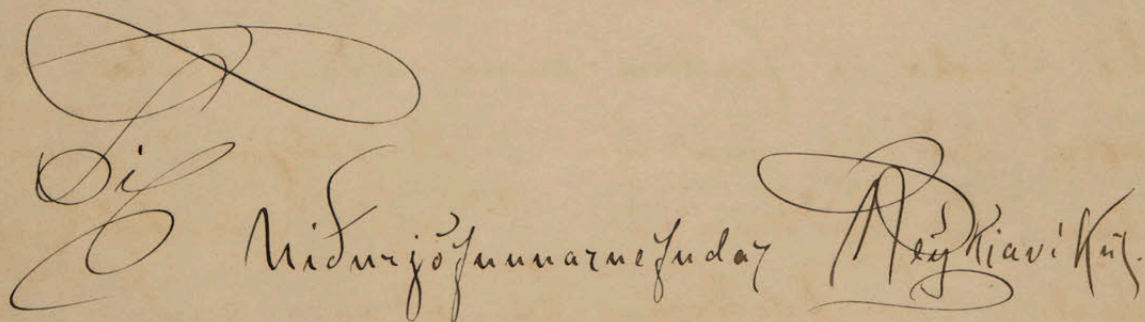 Til
Niðurjöfnunarnefndar Reykjavíkur.